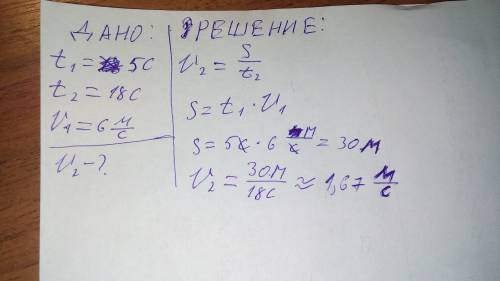 ДАНО:
t₁ = 5с
t₂ = 18с
v₁ = 6 м/с
v₂ - ?
РЕШЕНИЕ:
v₂ = S/t₂
S = t₁ · v₁
S = 5с · 6 м/с = 30м
v₂ = 30м/18с ≈ 1,67 м/с